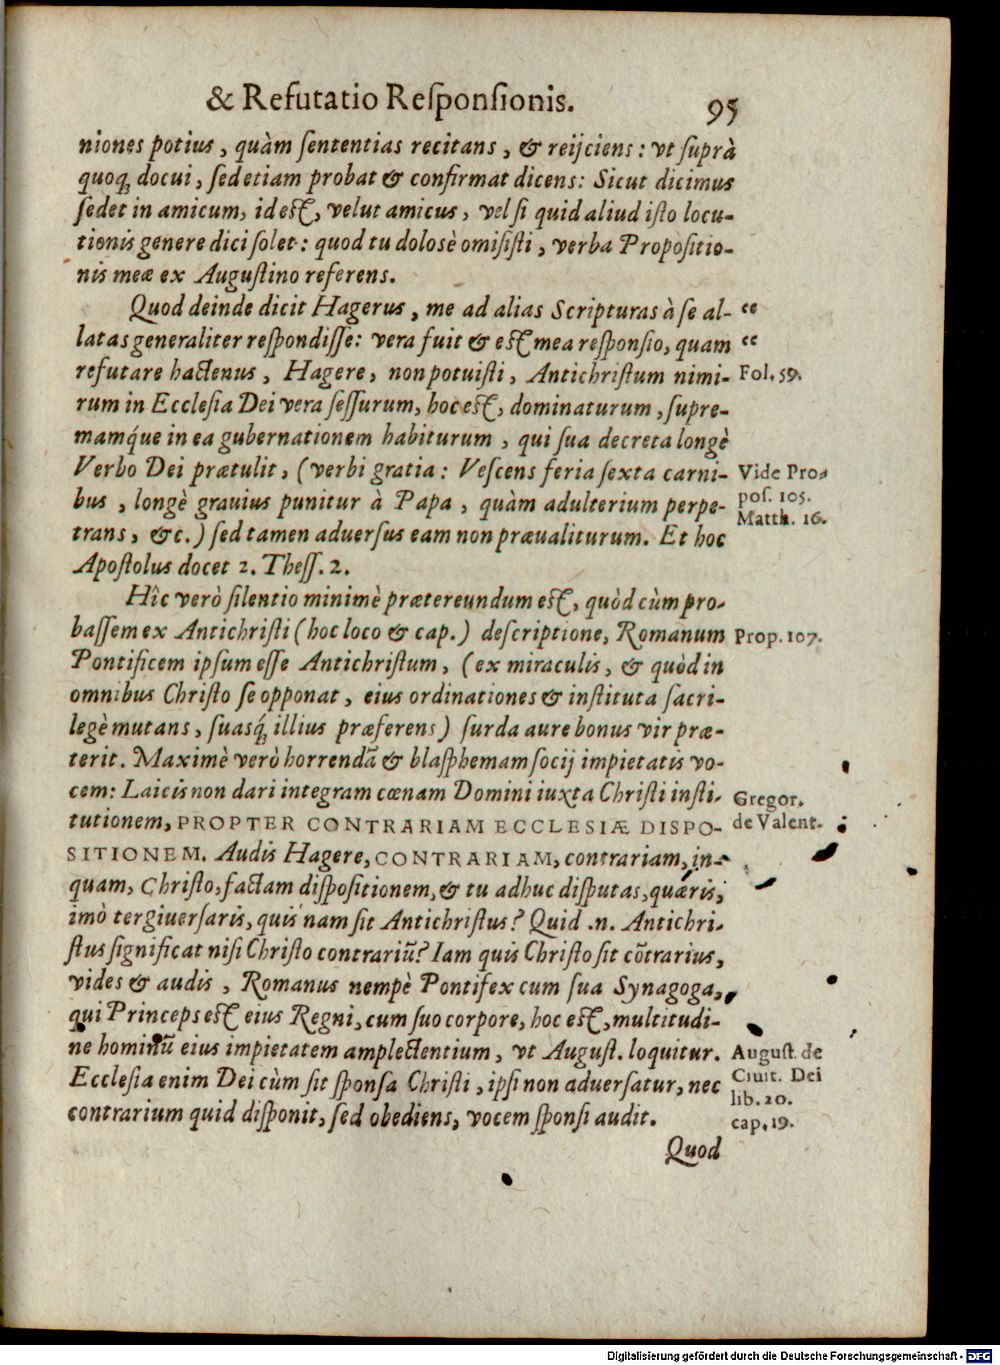 & Refutatio Reſponſionis. 95
niones potius, quàm ſententias recitans, & reijciens: vt ſuprà
quoq́ docui, ſed etiam probat & confirmat dicens: Sicut dicimus
ſedet in amicum, id eſt, velut amicus, vel ſi quid aliud iſto locu-
tionis genere dici ſolet: quod tu dolosè omiſiſti, verba Propoſitio-
nis meæ ex Auguſtino referens.
Quod deinde dicit Hagerus, me ad alias Scripturas à ſe al- “
latas generaliter reſpondiſſe: vera fuit & eſt mea reſponſio, quam “
refutare hactenus, Hagere, non potuiſti, Antichriſtum nimi- Fol. 59.
rum in Eccleſia Dei vera ſeſſurum, hoc eſt, dominaturum, ſupre-
mamq́ue in ea gubernationem habiturum, qui ſua decreta longè
Verbo Dei prætulit, (verbi gratia: Veſcens feria ſexta carni- Vide Pro-
bus, longè grauius punitur à Papa, quàm adulterium perpe- poſ. 105.
trans, &c.) ſed tamen aduerſus eam non præualiturum. Et hoc Matth. 16.
Apoſtolus docet 2. Theſſ. 2.
Hîc verò ſilentio minimè prætereundum eſt, quòd cùm pro-
baſſem ex Antichriſti (hoc loco & cap.) deſcriptione, Romanum Prop. 107.
Pontificem ipſum eſſe Antichriſtum, (ex miraculis, & quòd in
omnibus Chriſto ſe opponat, eius ordinationes & inſtituta ſacri-
legè mutans, ſuasq́ illius præferens) ſurda aure bonus vir præ-
terit. Maximè verò horrendã & blaſphemam ſocij impietatis vo-
cem: Laicis non dari integram cœnam Domini iuxta Chriſti inſti- Gregor.
tutionem, PROPTER CONTRARIAM ECCLESIÆ DISPO- de Valent.
SITIONEM. Audis Hagere, CONTRARIAM, contrariam, in-
quam, Chriſto, factam diſpoſitionem, & tu adhuc diſputas, quæris,
imò tergiuerſaris, quis nam ſit Antichriſtus? Quid .n. Antichri-
ſtus ſignificat niſi Chriſto contrariũ? Iam quis Chriſto ſit cõtrarius,
vides & audis, Romanus nempè Pontifex cum ſua Synagoga,
qui Princeps eſt eius Regni, cum ſuo corpore, hoc eſt, multitudi-
ne hominũ eius impietatem amplectentium, vt Auguſt. loquitur. Auguſt. de
Eccleſia enim Dei cùm ſit ſponſa Chriſti, ipſi non aduerſatur, nec Ciuit. Dei
contrarium quid diſponit, ſed obediens, vocem ſponſi audit. lib. 20.
cap. 19.
Quod
Digitalisierung gefördert durch die Deutsche Forschungsgemeinschaft - DFG